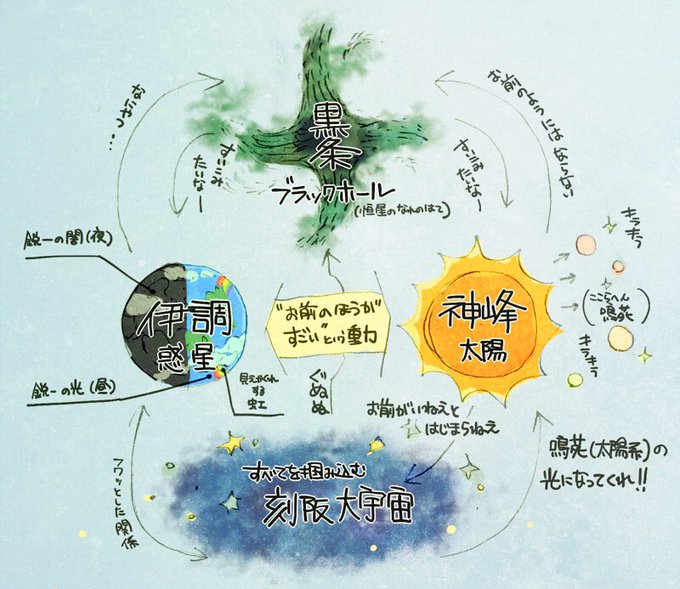 黒
条
ブラックホール
(恒星のなれのはて)
つまんむ…
すいこみ
たいなー
すいこみ
たいなー
お前のようにはならない
鋭一の闇(夜)
伊調
惑星
鋭一の光(昼)
見えかくれ
する
虹
"お前のほうが
すごい"という動力
ぐぬぬ
神峰
太陽
キラキラ
(ここらへん
鳴苑)
キラキラ
お前がいねえと
はじまらねえ
鳴苑(太陽系)の
光になってくれ!!
フワッとした関係
すべてを掴み込む
刻阪大宇宙